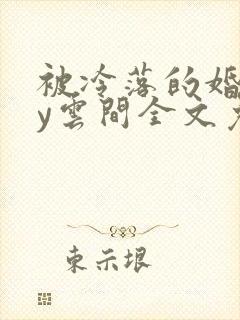 被冷落的婚
y雲間全文
東示垠